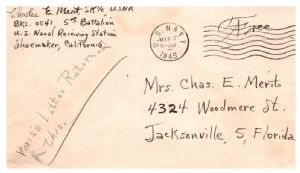 Charles E. Merit, SK1/c USNR
Bks. 0541, 5th Battalion
U.S. Naval Receiving Station
Shoemaker, California
U.S. NAVY
MAR
11-AM
1945
Free
Mrs. Chas. E. Merit
4324 Woodmere St.
Jacksonville, 5, Florida
Letter Returned
thrs.